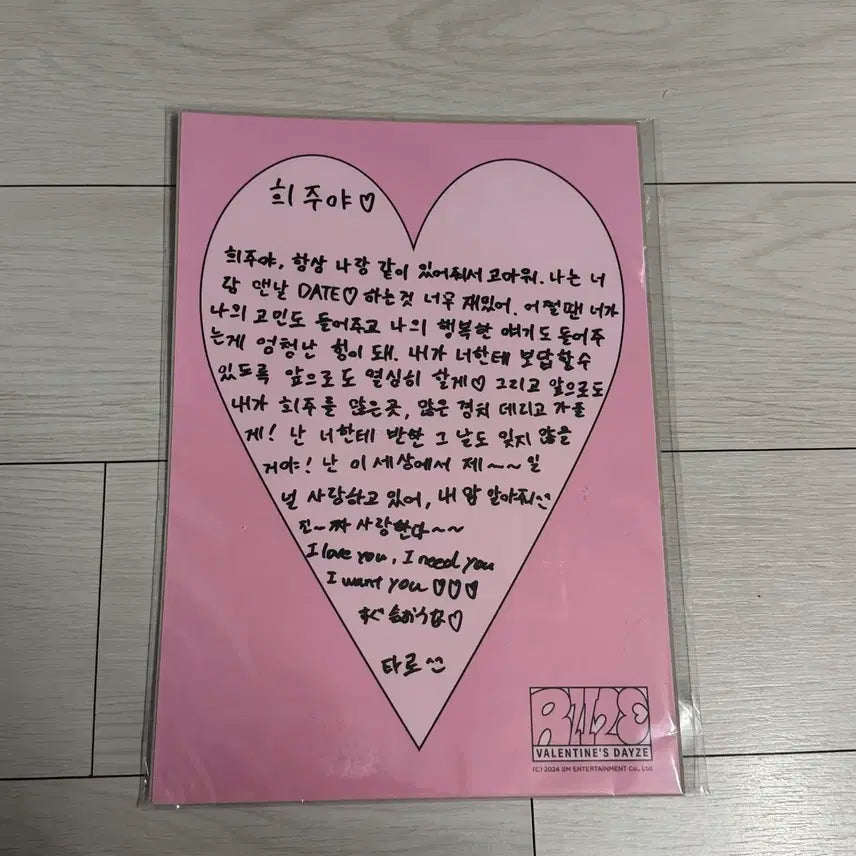 희주야♡
희주야, 항상 나랑 같이 있어줘서 고마워. 나는 너
랑 맨날 DATE♡ 하는것 너무 재밌어. 어쩔땐 너가
나의 고민도 들어주고 나의 행복한 얘기도 들어주
는게 엄청난 힘이 돼. 내가 너한테 보답할수
있도록 앞으로도 열심히 할게♡ 그리고 앞으로도
내가 희주를 많은곳, 많은 경치 데리고 가줄
게! 난 너한테 반한 그 날도 잊지 않을
거야! 난 이 세상에서 제~~일
널 사랑하고 있어, 내 맘 알아줘^^
진~짜 사랑한다~~
I love you, I need you
I want you ♡♡♡
すぐ会おうな♡
타로^^
RIIZE
VALENTINE'S DAYZE
(C) 2024 SM ENTERTAINMENT Co., Ltd.